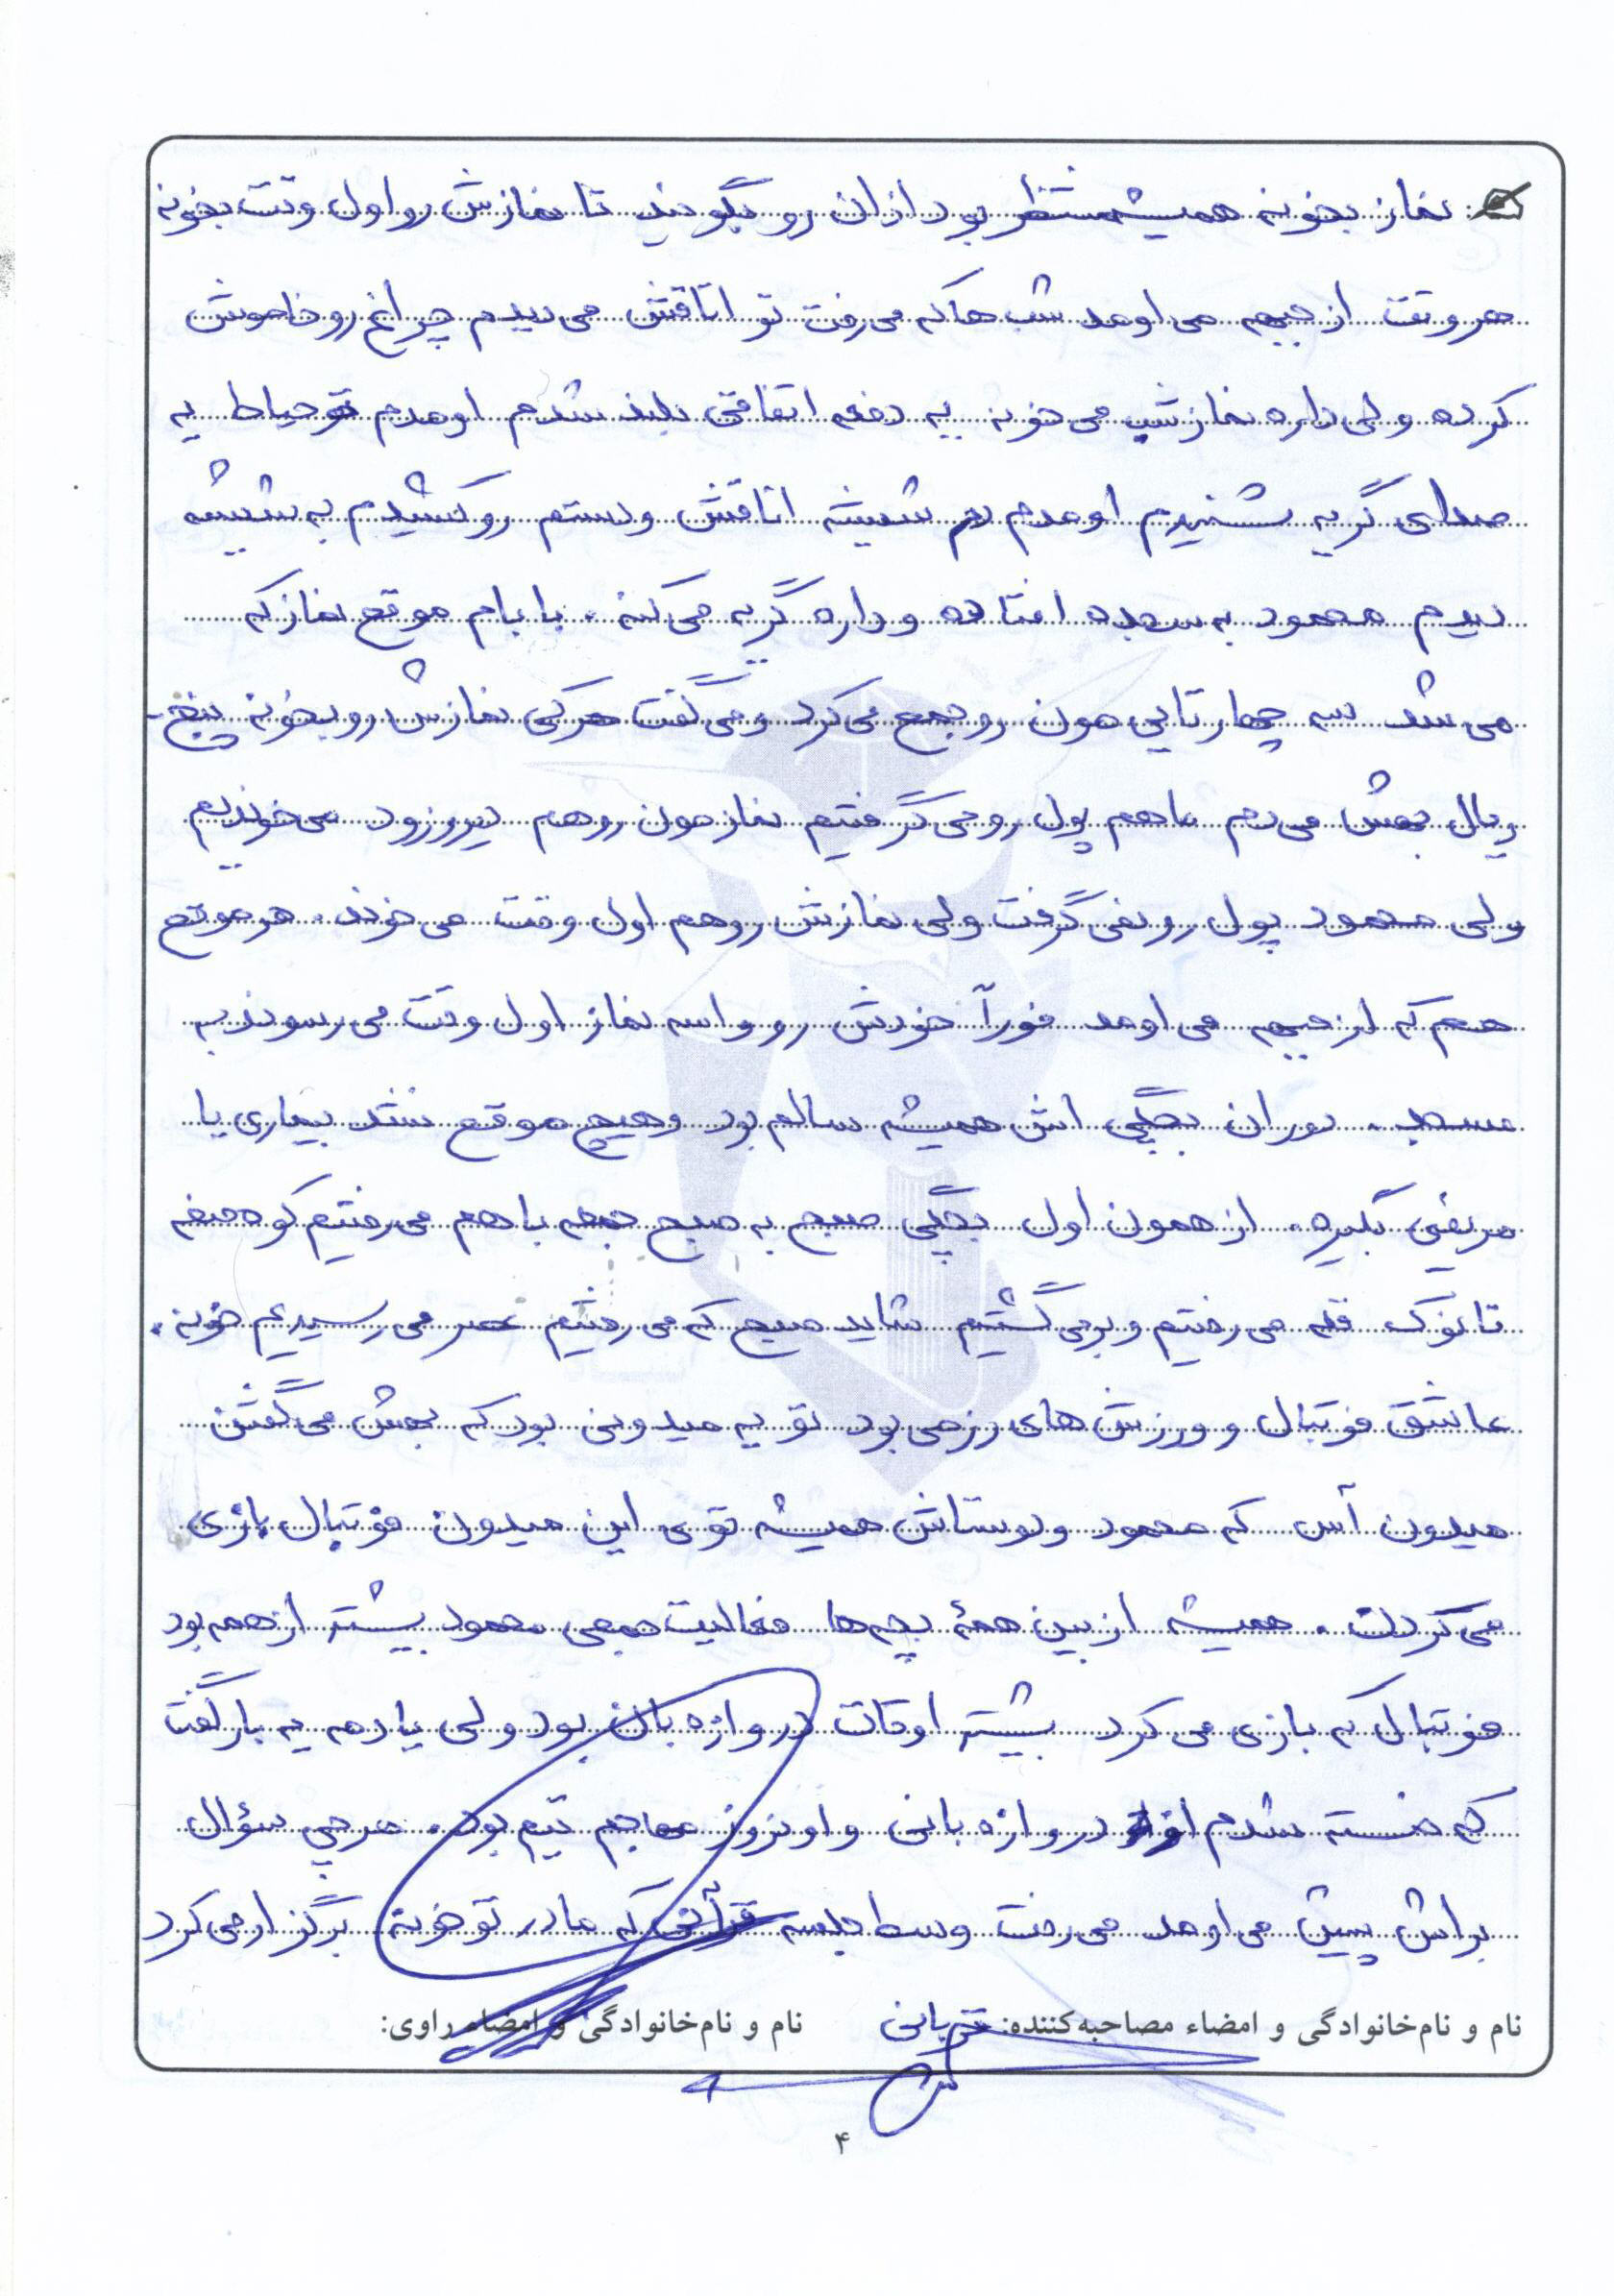 نماز بخونه همیشه منتظر بود اذان رو بگویند تا نمازش رو اول وقت بخونه
هر وقت از جبهه می اومد شب ها که می رفت تو اتاقش می دیدم چراغ رو خاموش
کرده ولی داره نماز شب می خونه یه دفعه اتفاقی بلند شدم اومدم تو حیاط یه
صدای گریه شنیدم اومدم دم شیشه اتاقش و دستم رو کشیدم به شیشه
دیدم محمود به سجده افتاده و داره گریه می کنه. بابام موقع نماز که
می شد سه چهار تایی مون رو جمع می کرد و می گفت هر کی نمازش رو بخونه پنج
ریال بهش می دم ما هم پول رو می گرفتیم نمازمون رو هم دیر و زود می خوندیم
ولی محمود پول رو نمی گرفت ولی نمازش رو هم اول وقت می خوند. هر موقع
هم که از جبهه می اومد فوراً خودش رو واسه نماز اول وقت می رسوند به
مسجد. دوران بچگی اش همیشه سالم بود و هیچ موقع نشد بیماری یا
مریضی بگیره. از همون اول بچگی صبح به صبح جمعه با هم می رفتیم کوه صفه
تا نوک قله می رفتیم و بر می گشتیم شاید صبح که می رفتیم عصر می رسیدیم خونه.
عاشق فوتبال و ورزش های رزمی بود تو یه میدونی بود که بهش می گفتن
میدون آس که محمود و دوستاش همیشه توی این میدون فوتبال بازی
می کردن. همیشه از بین همهٔ بچه ها فعالیت جمعی محمود بیشتر از همه بود
فوتبال که بازی می کرد بیشتر اوقات دروازه بان بود ولی یادمه یه بار گفت
که خسته شدم از دروازه بانی و اونروز مهاجم تیم بود. هرچی سؤال
براش پیش می اومد می رفت وسط جلسه قرآنی که مادر تو خونه برگزار می کرد
نام و نام‌خانوادگی و امضاء مصاحبه‌کننده: قربانی نام و نام‌خانوادگی و امضاء راوی:
۴